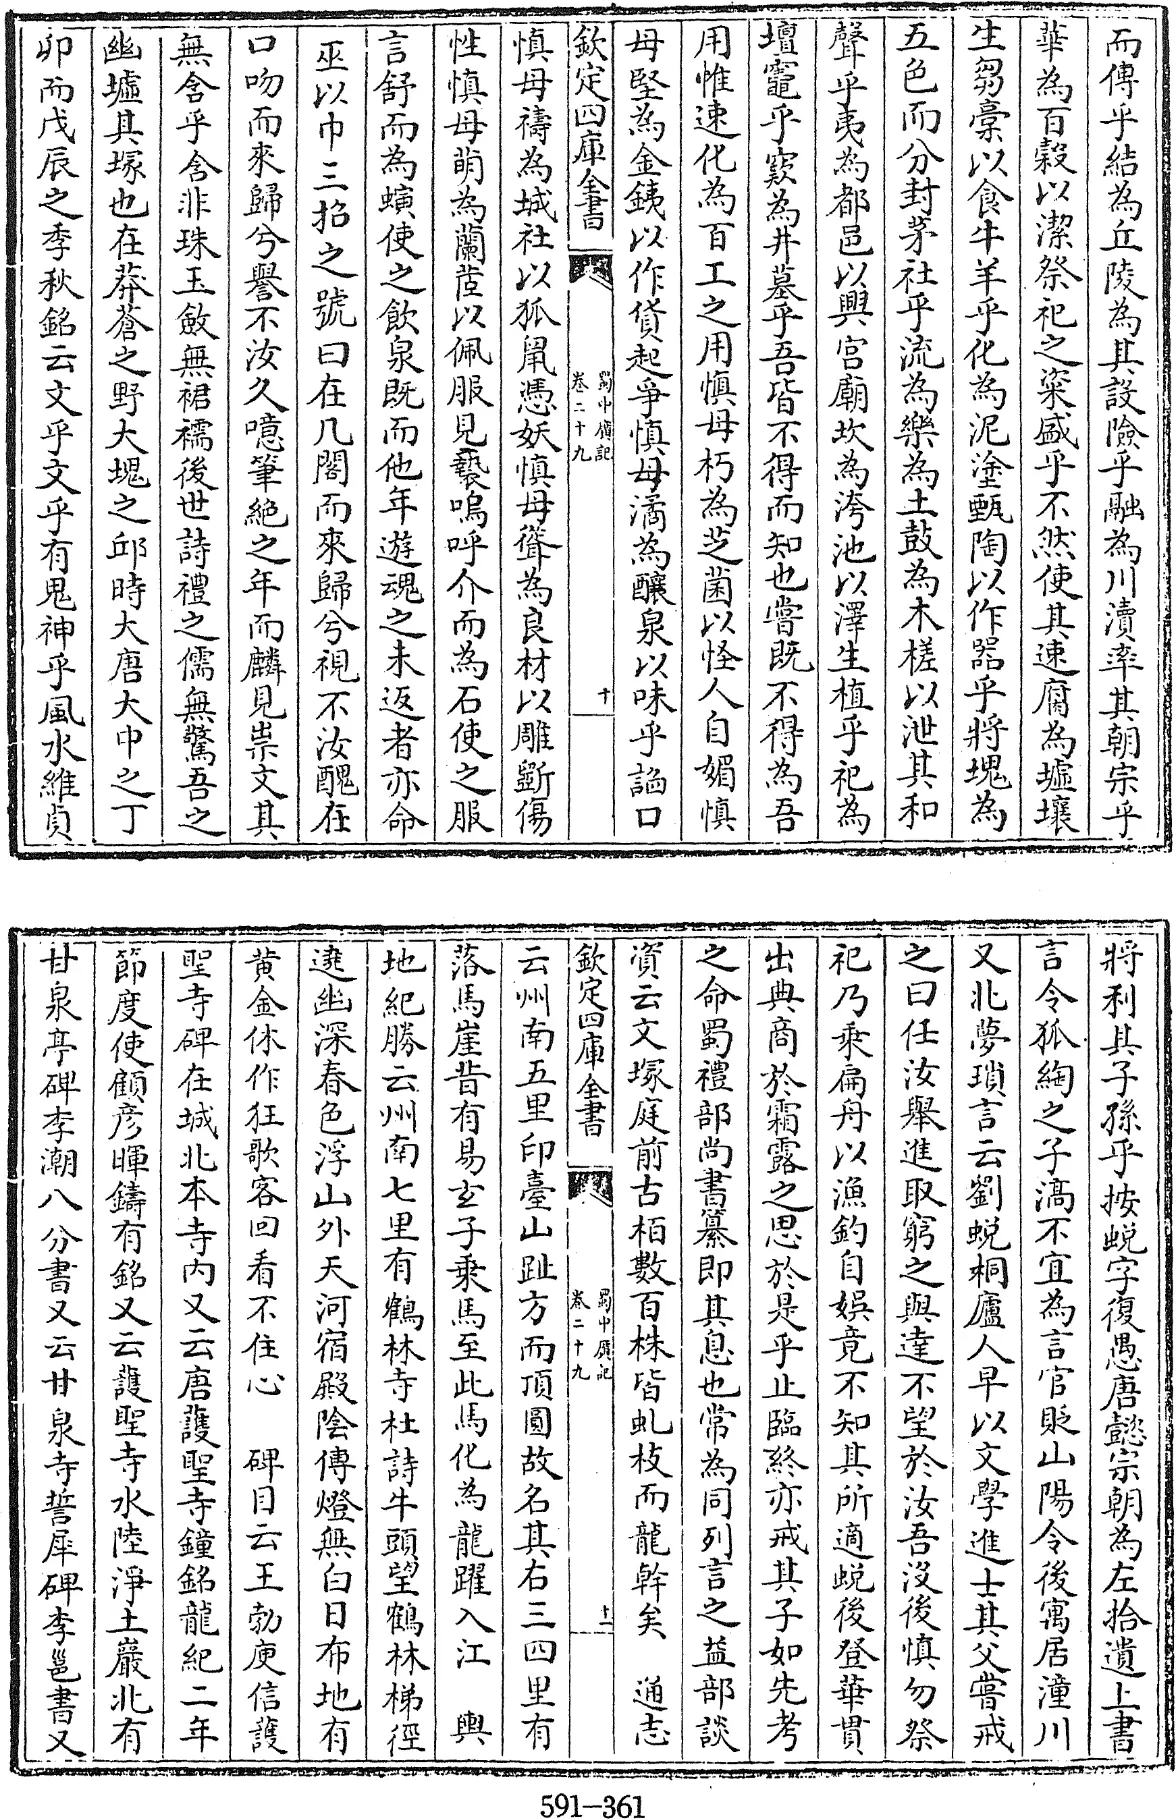 而傳乎結為丘陵為其設險乎融為川瀆率其朝宗乎
華為百穀以潔祭祀之粢盛乎不然使其速腐為墟壤
生芻稾以食牛羊乎化為泥塗甄陶以作器乎將塊為
五色而分封茅社乎流為樂為土鼓為木槎以泄其和
聲乎夷為都邑以興宫廟坎為洿池以澤生植乎祀為
壇竈乎窾為井墓乎吾皆不得而知也嘗既不得為吾
用惟速化為百工之用慎毋朽為芝菌以怪人自媚慎
毋堅為金銕以作貨起爭慎毋潏為釀泉以味乎謟口
欽定四庫全書
蜀中廣記
卷二十九
十
慎毋禱為城社以狐鼠憑妖慎毋聳為良材以雕斵傷
性慎毋萌為蘭茝以佩服見褻嗚呼介而為石使之服
言舒而為螾使之飲泉既而他年遊魂之未返者亦命
巫以巾三招之號曰在几閣而來歸兮視不汝醜在
口吻而來歸兮譽不汝久噫筆絶之年而麟見祟文其
無含乎含非珠玉斂無裙襦後世詩禮之儒無驚吾之
幽墟其塚也在莽蒼之野大塊之邱時大唐大中之丁
卯而戊辰之季秋銘云文乎文乎有鬼神乎風水維貞
將利其子孫乎按蛻字復愚唐懿宗朝為左拾遺上書
言令狐綯之子滈不宜為言官貶山陽令後寓居潼川
又北夢瑣言云劉蛻桐廬人早以文學進士其父嘗戒
之曰任汝舉進取窮之與達不望於汝吾沒後慎勿祭
祀乃乘扁舟以漁釣自娛竟不知其所適蛻後登華貫
出典商於霜露之思於是乎止臨終亦戒其子如先考
之命蜀禮部尚書纂即其息也常為同列言之益部談
資云文塚庭前古栢數百株皆虬枝而龍幹矣　通志
欽定四庫全書
蜀中廣記
卷二十九
十一
云州南五里印臺山趾方而頂圓故名其右三四里有
落馬崖昔有易玄子乘馬至此馬化為龍躍入江　輿
地紀勝云州南七里有鶴林寺杜詩牛頭望鶴林梯徑
遶幽深春色浮山外天河宿殿陰傳燈無白日布地有
黃金休作狂歌客回看不住心　碑目云王勃庾信護
聖寺碑在城北本寺内又云唐護聖寺鐘銘龍紀二年
節度使顧彦暉鑄有銘又云護聖寺水陸淨土巖北有
甘泉亭碑李潮八分書又云甘泉寺誓犀碑李邕書又
591—361